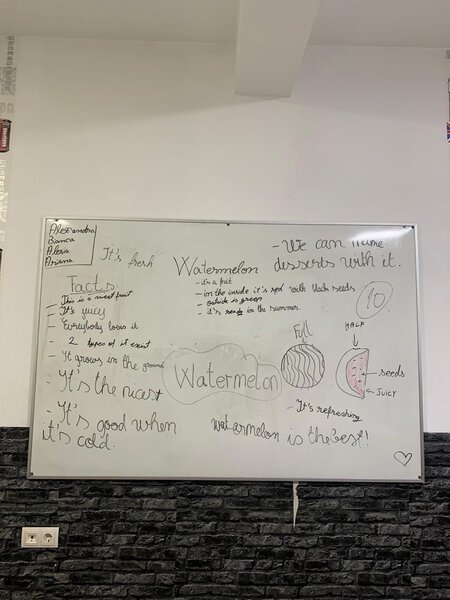 Alexandra
Bianca
Alexia
Ariana
It's fresh
Facts
- This is a sweet fruit
- It's juicy
- Everybody loves it
2 types of it exist
- It grows in the ground
- It's the nicest
- It's good when
it's cold.
Watermelon
- it's a fruit
- in the inside it's red with black seeds
- outside is green
- it's in the summer
- We can make
desserts with it.
10
Watermelon
Full
HALF
seeds
Juicy
- It's refreshing
watermelon is the best!